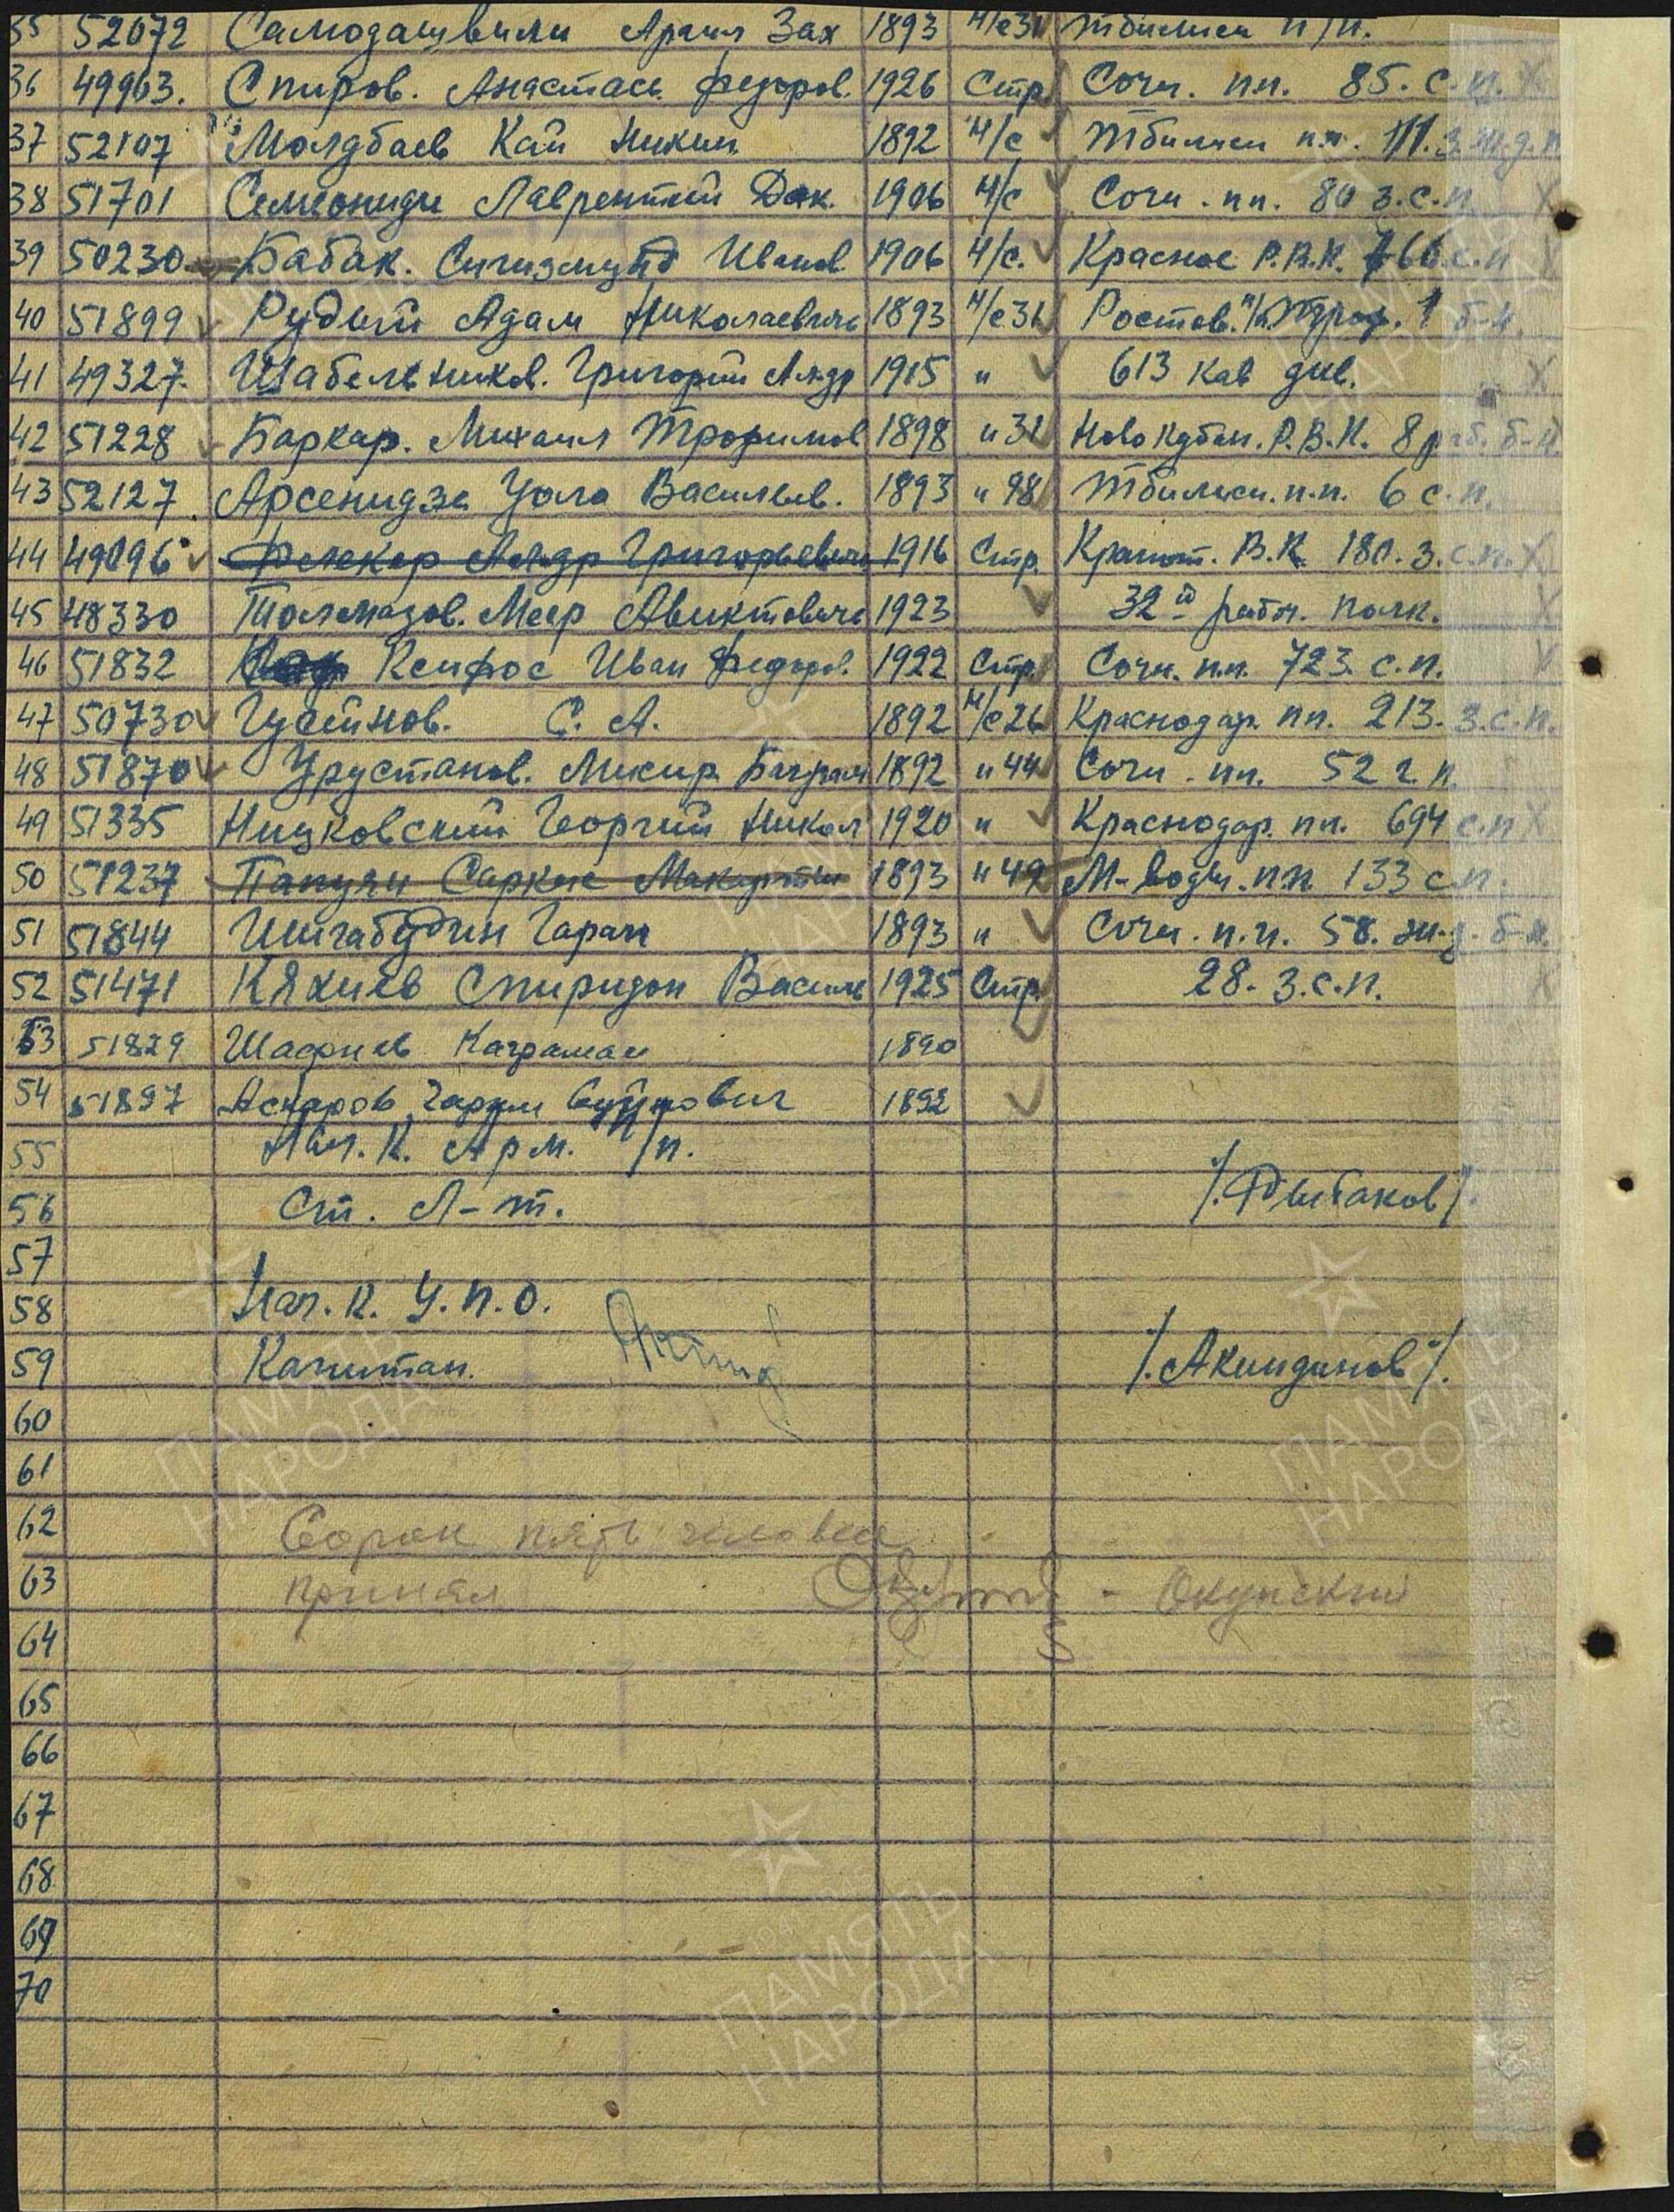 35 52072 Самодашвили Арчил Зах 1893 н/с31 Тбилиси п/п.
36 49963. Спиров. Анастась Федоров. 1926 Стр Сочи. пп. 85. с.п.
37 52107 Молдбаев Кай 1892 н/с Тбилиси п.п. 111.
38 51701 Семеониди Лаврентий 1906 н/с Сочи. пп. 80 з.с.п
39 50230 Бабак. Сигизмунд Иванов 1906 н/с. Красное Р.В.К.
40 51899 Рудый Адам Николаевичь 1893 н/с31 Ростов. 1 б-н.
41 49327 Шабельников. Григорий Алдр 1915 " 613 Кав див.
42 51228 Баркар. Михаил Трофимов 1898 "31 Новокубан. Р.В.К. 8 раб. б-н
43 52127 Арсенидзе Васильев. 1893 "98 Тбилиси. п.п. 6 с.п.
44 49096 Алдр Григорьевичь 1916 Стр. В.К. 180. з.с.п.
45 48330 Толмазов. Меер Авиктовичь 1923 32й рабоч. полк.
46 51832 Ксифос Иван Федоров. 1922 Стр. Сочи. п.п. 723. с.п.
47 50730 Гусейнов. С. А. 1892 н/с26 Краснодар. пп. 213. з.с.п.
48 51870 Урустанов. Баграм 1892 "44 Сочи. пп. 52
49 51335 Ницковский Георгий Никол 1920 " Краснодар. пп. 694 с.п
50 51237 Папуян Саркис 1893 "49 М-воды. п.п 133 с.п.
51 51844 Гарап 1893 " Сочи. п.п. 58. ж.д. б-н.
52 51471 Кяхиев Спиридон Василь 1925 Стр. 28. з.с.п.
53 51829 Каграман 1890
54 51897 Аскаров 1892
55 Нач. К. Арм. п/п.
56 Ст. Л-т.
57
58 Нач. К. У.П.О.
59 Капитан. /.Акиндинов/.
60
61
62 Сорок пять человек
63 принял - Окунский
64
65
66
67
68
69
70
ПАМЯТЬ НАРОДА
ПАМЯТЬ НАРОДА
ПАМЯТЬ НАРОДА